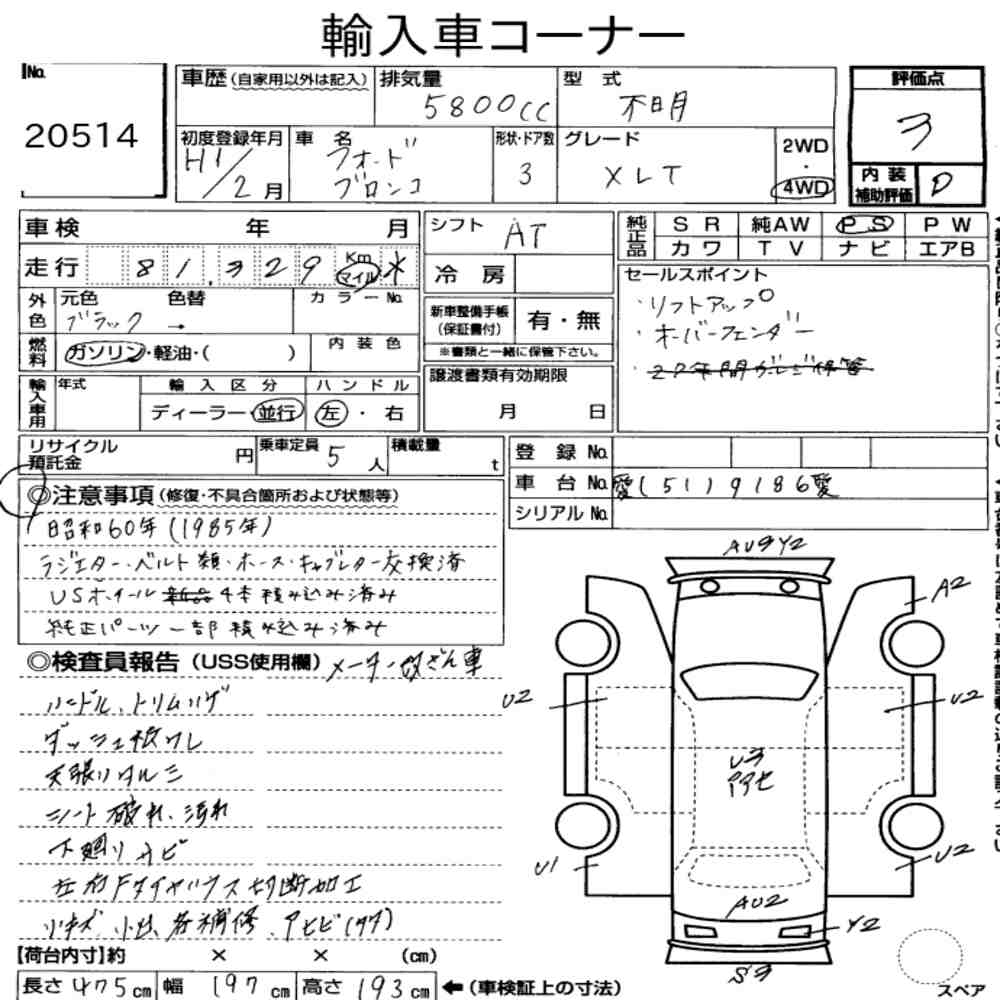 輸入車コーナー
No.
20514
車歴(自家用以外は記入)
排気量
5800cc
型 式
不明
評価点
3
初度登録年月
H1/2月
車 名
フォード
ブロンコ
形状・ドア数
3
グレード
XLT
2WD
・
4WD
内 装
補助評価
D
車検 年 月
シフト
AT
純正品
SR 純AW PS PW
カワ TV ナビ エアB
走行 81,329 Km マイル *
冷 房
セールスポイント
・リフトアップ
・オーバーフェンダー
外色
元色 色替
ブラック →
カラーNo.
新車整備手帳
(保証書付)
有・無
※書類と一緒に保管下さい。
燃料
ガソリン・軽油・( )
内 装 色
譲渡書類有効期限
月 日
輸入車用
年式
輸 入 区 分
ディーラー・並行
ハ ン ド ル
左 ・ 右
リサイクル
預託金
円
乗車定員
5人
積載量
t
登 録 No.
車 台 No. 愛(51)9186愛
シリアルNo.
◎注意事項(修復・不具合箇所および状態等)
昭和60年(1985年)
ラジエター・ベルト類・ホース・キャブレター交換済
USホイール 新品 4本積み込み済み
純正パーツ一部積み込み済み
◎検査員報告(USS使用欄) メーター改ざん車
ハンドル、トリムハゲ
ダッシュ板ワレ
天張りタルミ
シート破れ、汚れ
下廻りサビ
左右Fタイヤハウス切断加工
小キズ 小凹 各補修、
A2
U2
U2
U3
U1
U2
AU2
Y2
S3
スペア
【荷台内寸】約 × × (cm)
長さ475cm 幅 197cm 高さ193cm ←(車検証上の寸法)